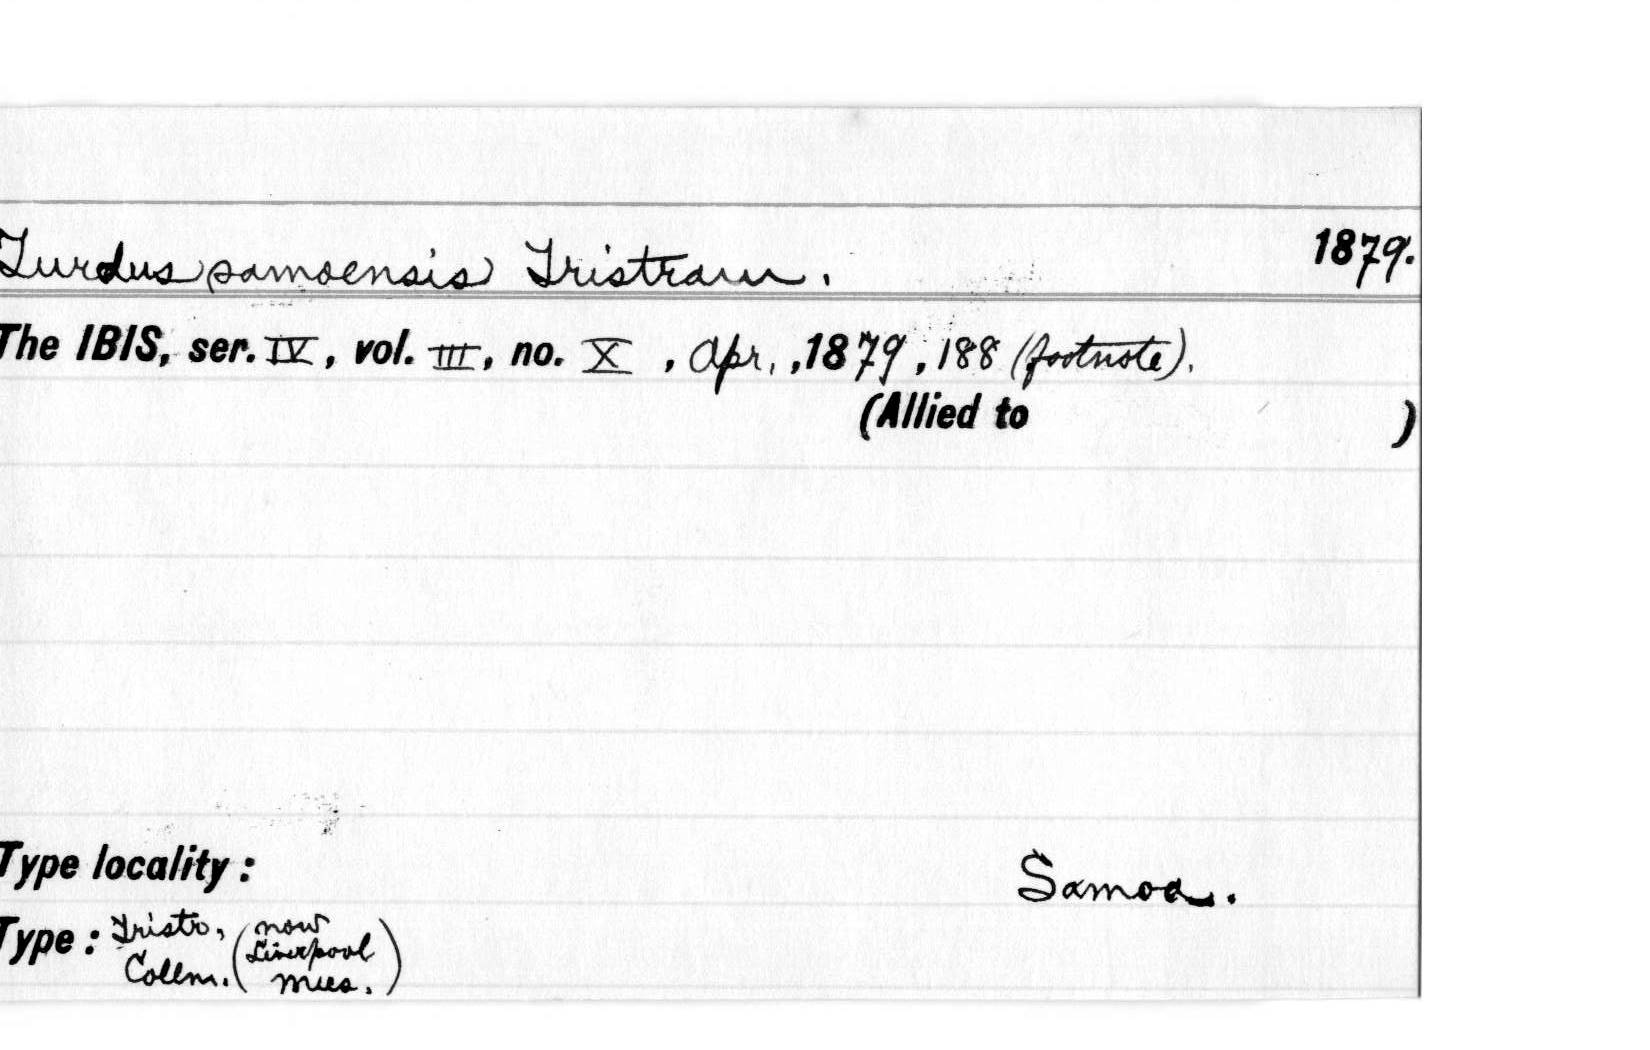 Turdus samoensis Tristram. 1879.
The IBIS, ser. IV, vol. III, no. X, Apr., 1879, 188 (footnote).
(Allied to )
Type locality: Samoa.
Type: Tristr. Collm. (now Liverpool Mus.)